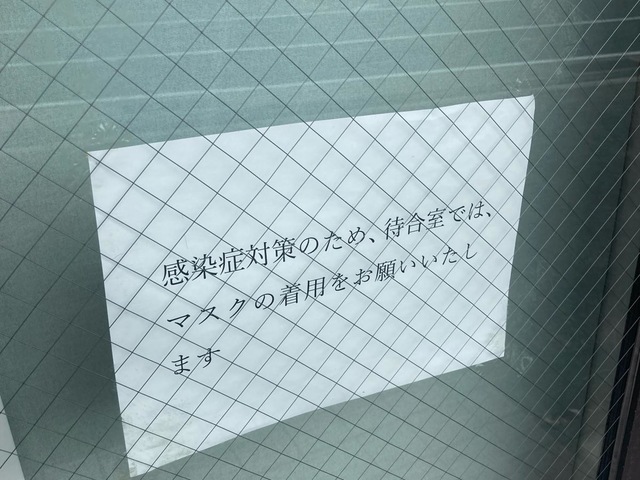 感染症対策のため、待合室では、
マスクの着用をお願いいたし
ます